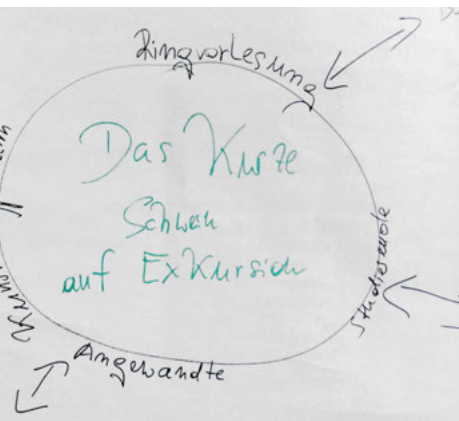 Ringvorlesung
Das Kurze
Schwen
auf ExKursion
Studierende
Angewandte
Kunst